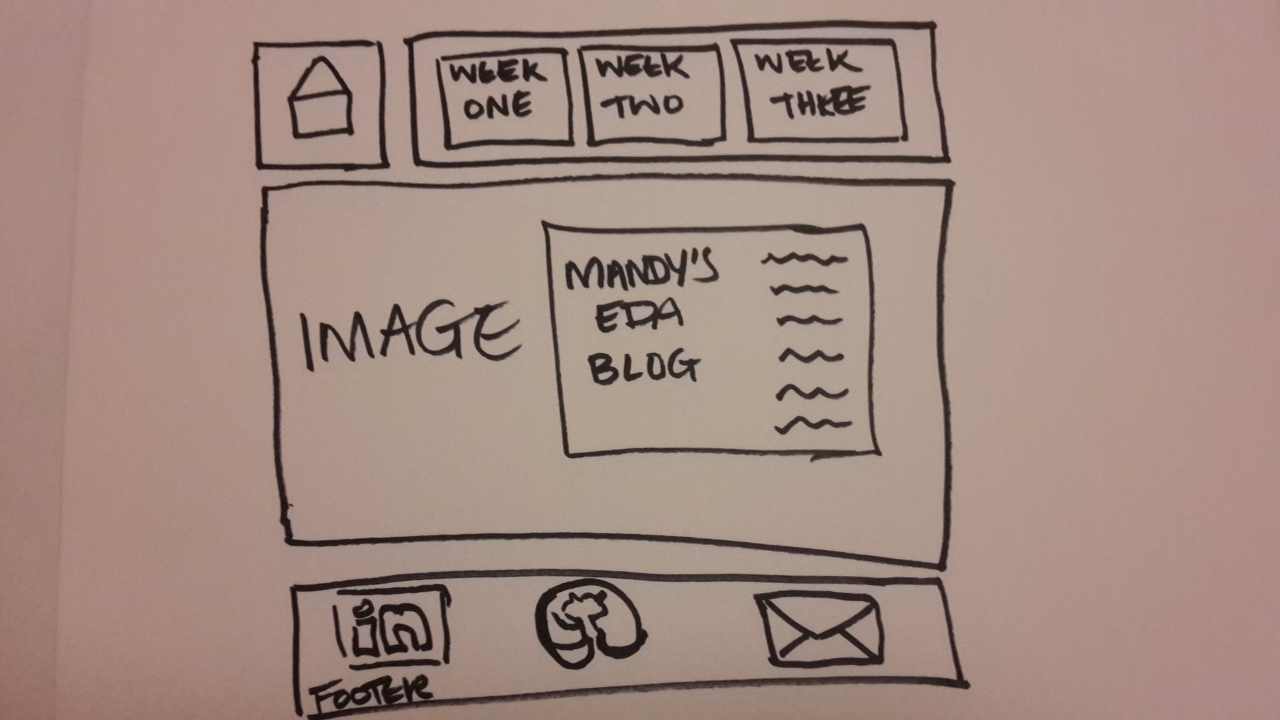 WEEK
ONE
WEEK
TWO
WEEK
THREE
IMAGE
MANDY'S
EDA
BLOG
in
FOOTER